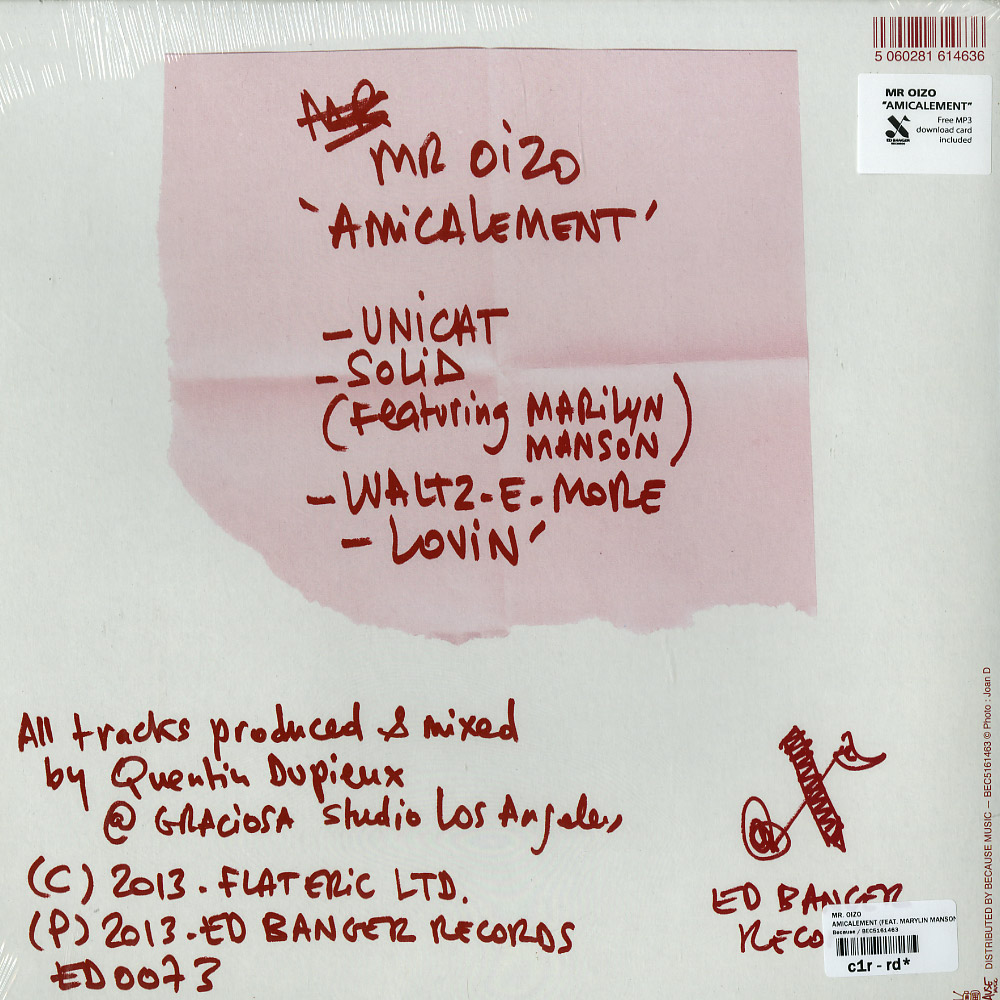 5 060281 614636
MR OIZO
"AMICALEMENT"
Free MP3
download card
included
ED BANGER
RECORDS
MR OiZO
'AMiCALEMENT'
- UNiCAT
- SOLiD
(Featuring MARiLYN
MANSON)
- WALTZ-E-MORE
- LOViN'
All tracks produced & mixed
by Quentin Dupieux
@ GRACiOSA Studio Los Angeles
(C) 2013. FLAT ERiC LTD.
(P) 2013. ED BANGER RECORDS
ED0073
ED BANGER
RECO
MR. OIZO
AMICALEMENT (FEAT. MARYLIN MANSON
Because / BEC5161463
c1r - rd*
DISTRIBUTED BY BECAUSE MUSIC – BEC5161463 © Photo : Joan D